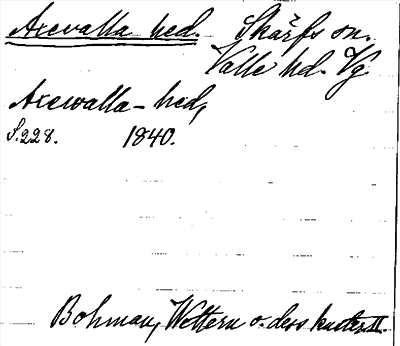 Axevalla hed. Skärfs sn.
Valle hd. Vg.
Axewalla-hed,
S. 228. 1840.
Bohman, Wettern o. dess kuster II.